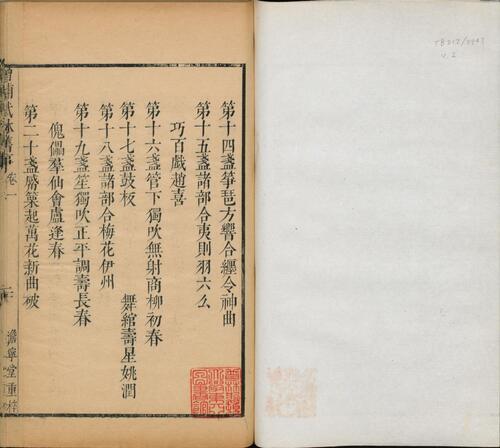 第十四盞箏琶方響合纏令神曲
第十五盞諸部合夷則羽六么
巧百戲趙喜
第十六盞管下獨吹無射商柳初春
第十七盞鼓板　舞綰壽星姚潤
第十八盞諸部合梅花伊州
第十九盞笙獨吹正平調壽長春
傀儡羣仙會盧逢春
第二十盞觱篥起萬花新曲破
增補武林舊事
卷一
澹寧堂重梓
v. 2